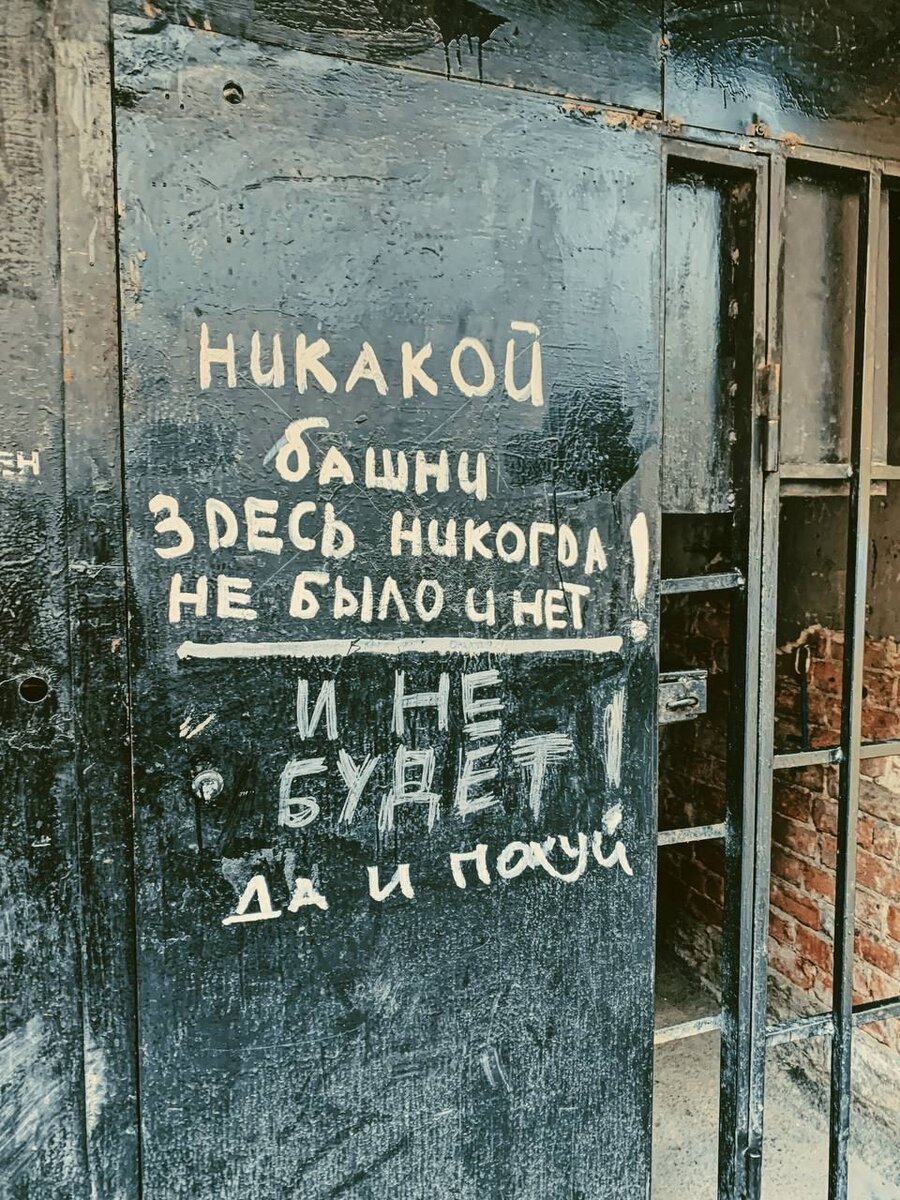 ЕН
НИКАКОЙ
башни
ЗДЕСЬ НИКОГДА!
НЕ БЫЛО И НЕТ
И НЕ
БУДЕТ!
ДА И ПОХУЙ